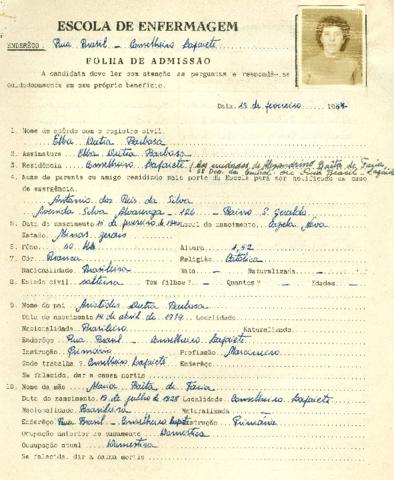 ESCOLA DE ENFERMAGEM
ENDERÊÇO: Rua Brasil – Conselheiro Lafaiete
FÔLHA DE ADMISSÃO
A candidata deve ler com atenção as perguntas e respondê-se
cuidadosamente em seu próprio benefício.
Data, 13 de fevereiro 19
1. Nome de acôrdo com o registro civil.
Elba Dutra Barbosa
2. Assinatura Elba Dutra Barbosa
3. Residência Conselheiro Lafaiete
4. Nome de parente ou amigo residindo mais perto da Escola para ser notificado em caso
de emergência.
Antônio dos Reis da Silva
Avenida Silva Alvarenga - 126 - Bairro S. Geraldo
5. Data do nascimento 15 de fevereiro de Local de nascimento Capela Nova
Estado. Minas Gerais
6. Pêso. Altura 1,52
7. Côr. Branca Religião Católica
Nacionalidade Brasileira Nata - Naturalizada -
8. Estado civil solteira Tem filhos? - Quantos? - Idades -
9. Nome do pai Aristides Dutra Barbosa
Data do nascimento 14 de abril de 1914 Localidade
Nacionalidade Brasileiro Naturalizado
Enderêço Rua Brasil - Conselheiro Lafaiete
Instrução. Primário Profissão Marceneiro
Onde trabalha? Conselheiro Lafaiete Enderêço
Se falecido, dar a causa mortis
10. Nome da mãe Maria Baêta de Faria
Data do nascimento 19 de julho de 1928 Localidade Conselheiro Lafaiete
Nacionalidade Brasileira Naturalizada -
Enderêço Rua Brasil - Conselheiro Lafaiete Instrução Primária
Ocupação anterior ao casamento Doméstica
Occupação atual Doméstica
Se falecida, dar a causa mortis